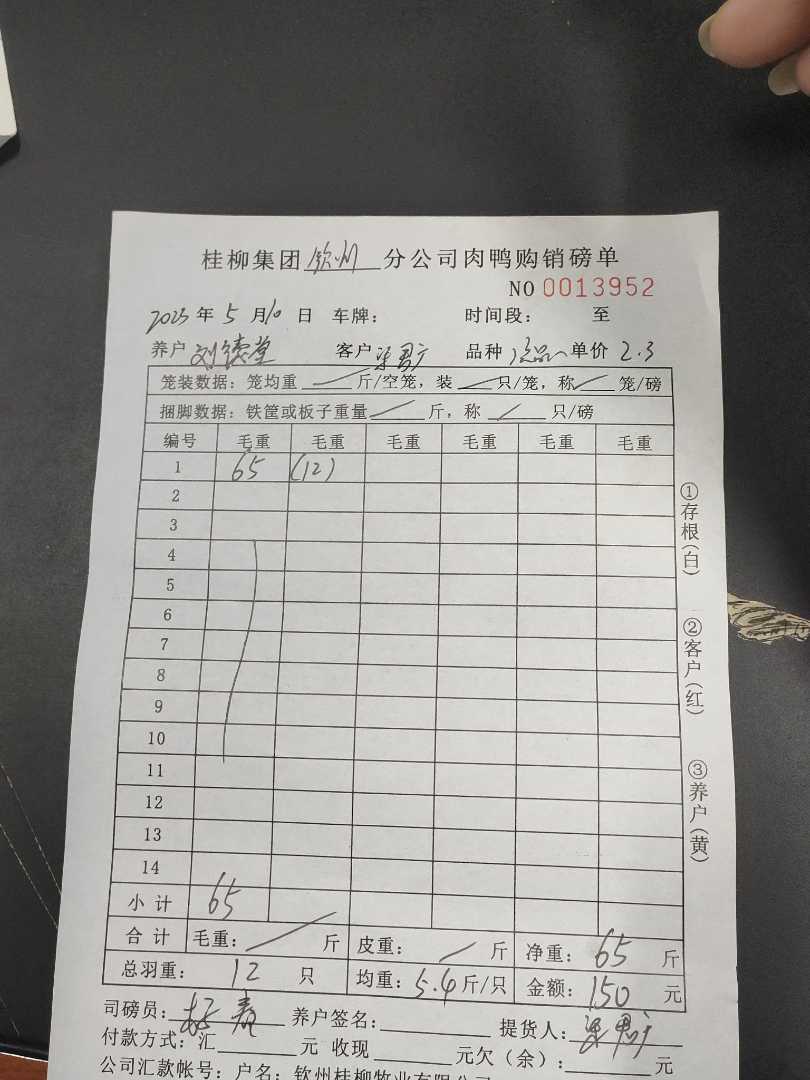 桂柳集团 钦州 分公司肉鸭购销磅单
NO 0013952
2023 年 5 月 10 日 车牌： 时间段： 至
养户 刘德堂 客户 品种 次品 单价 2.3
笼装数据：笼均重 / 斤/空笼，装 / 只/笼，称 / 笼/磅
捆脚数据：铁筐或板子重量 / 斤，称 / 只/磅
编号 毛重 毛重 毛重 毛重 毛重 毛重
1 65 (12)
2
3
4
5
6
7
8
9
10
11
12
13
14
小 计 65
合 计 毛重： / 斤 皮重： / 斤 净重： 65 斤
总羽重： 12 只 均重： 5.4 斤/只 金额： 150 元
司磅员： 养户签名： 提货人：
付款方式：汇 元 收现 元欠（余）： 元
公司汇款帐号：户名：钦州桂柳牧业有限公司
①存根（白）
②客户（红）
③养户（黄）